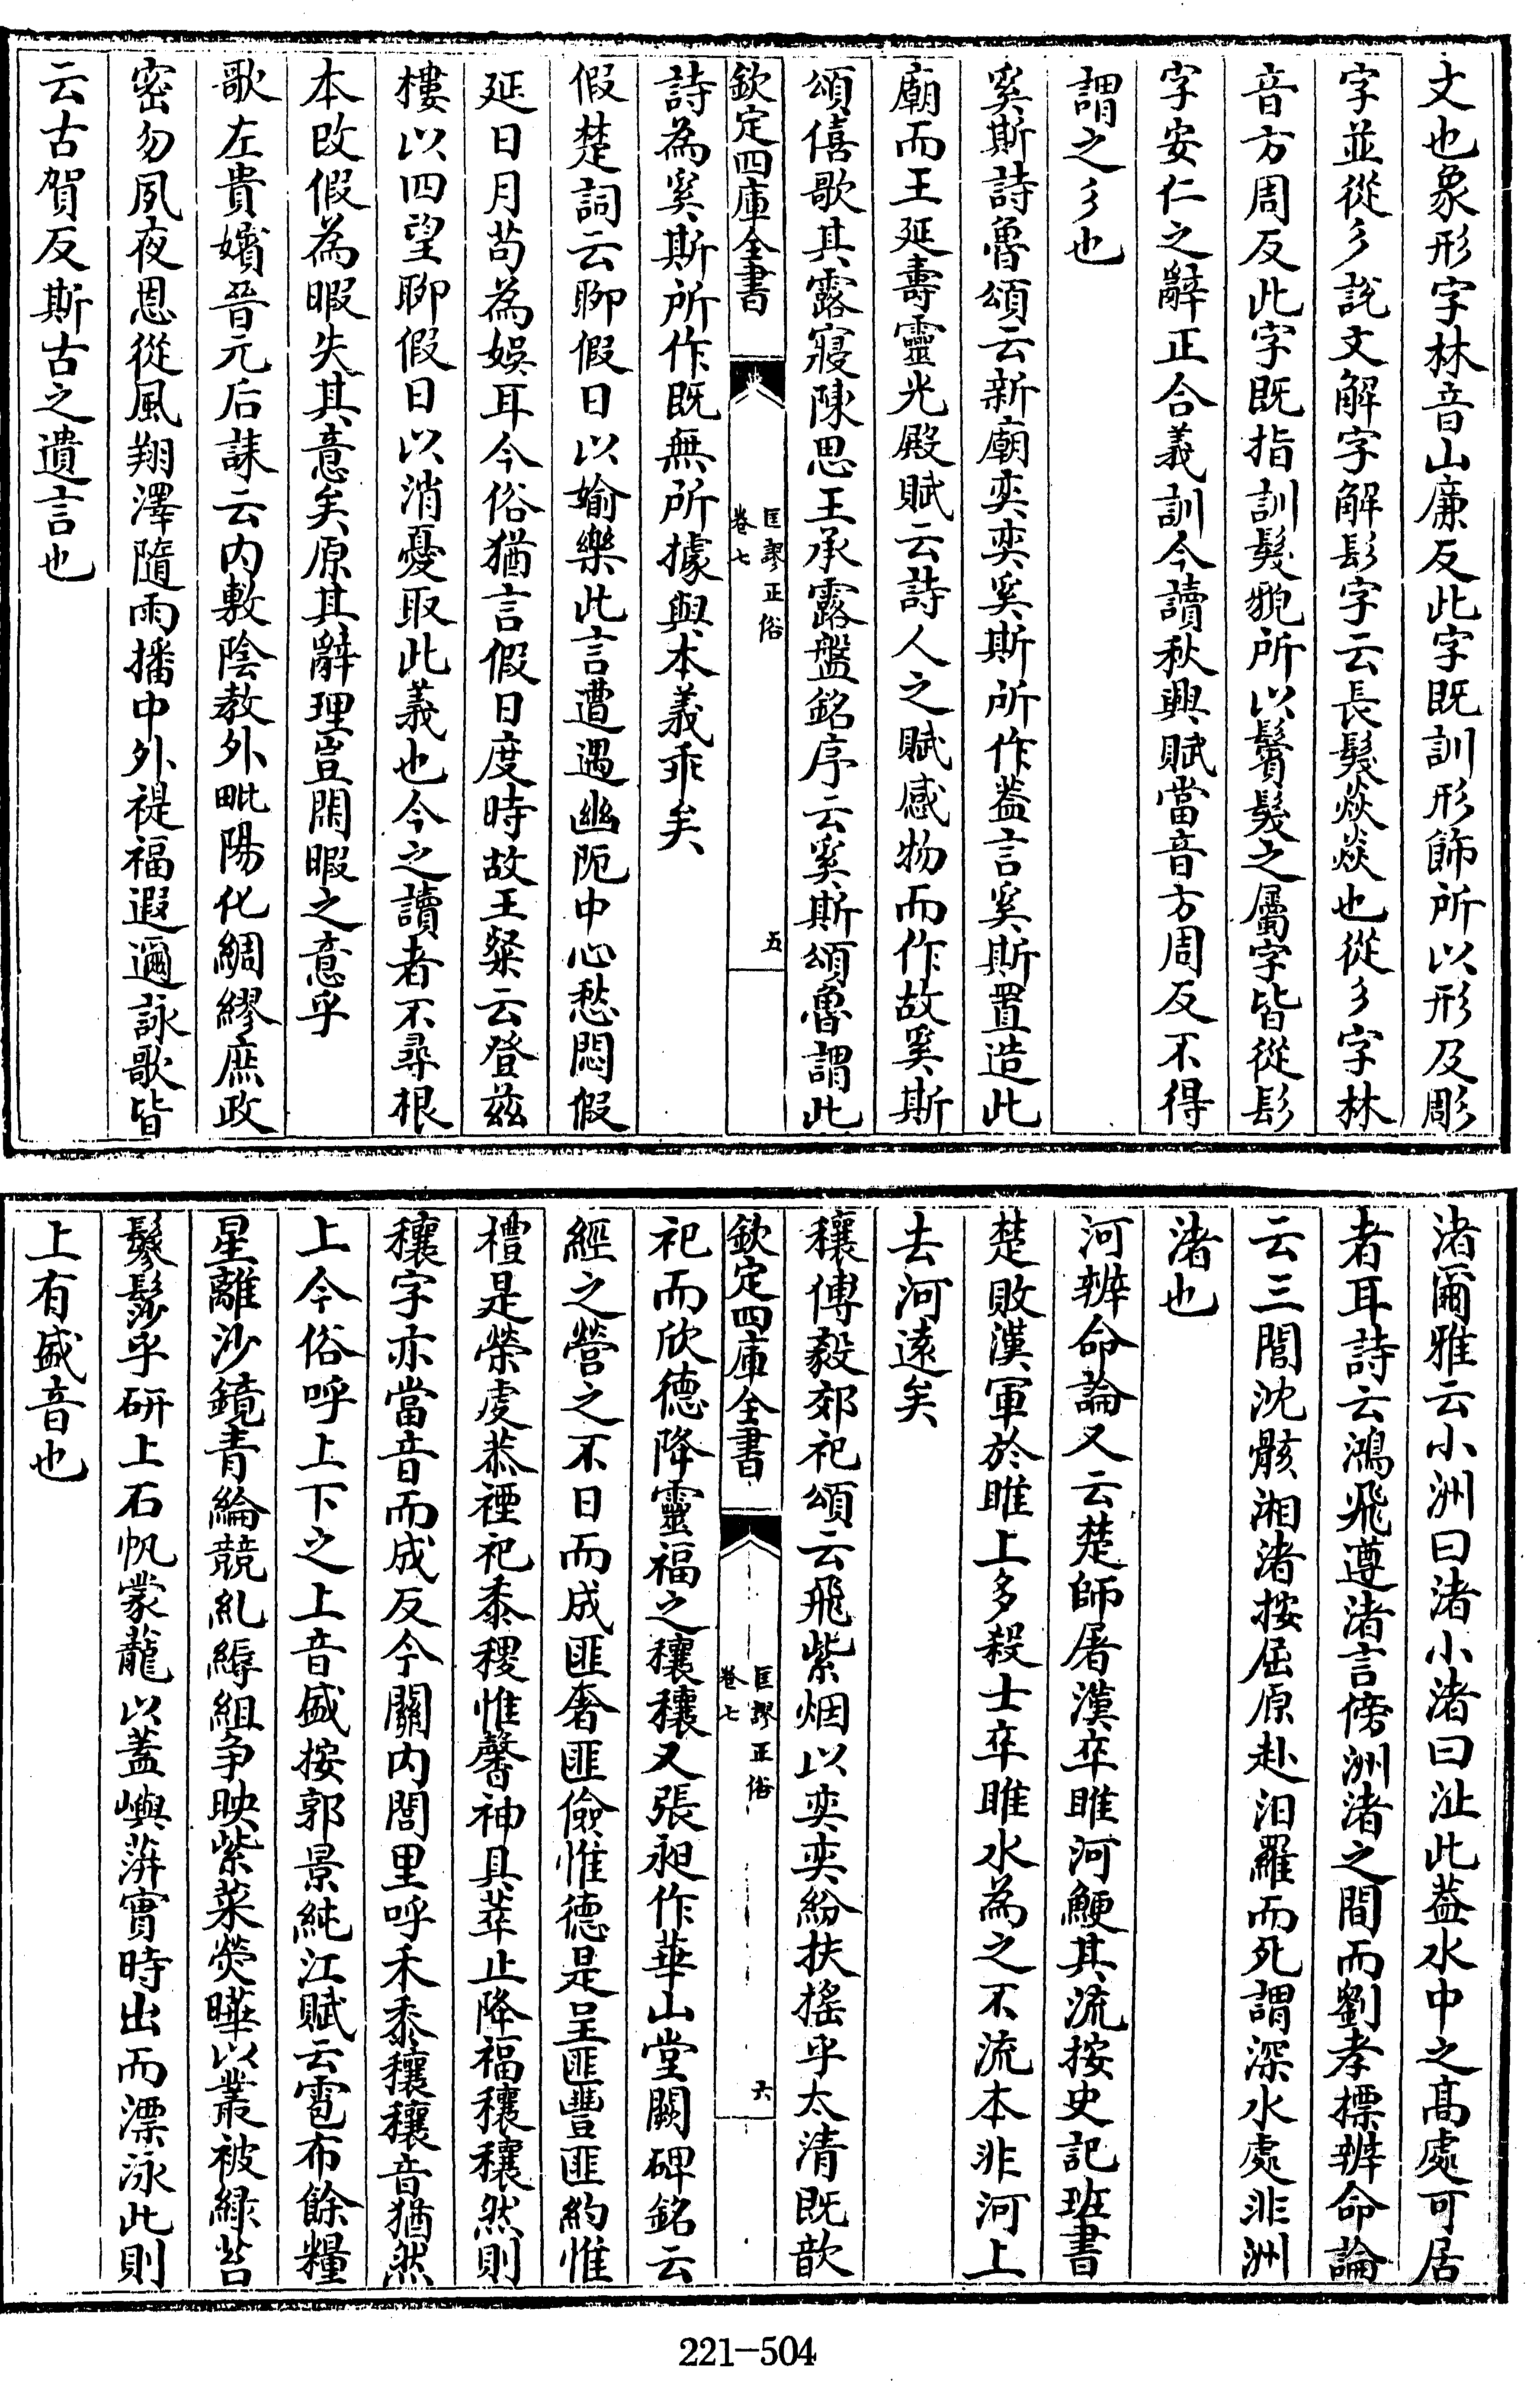 文也象形字林音山廉反此字既訓形飾所以形及彫
字並從彡說文解字解髟字云長髮猋猋也從彡字林
音方周反此字既指訓髮貌所以鬢髮之屬字皆從髟
字安仁之辭正合義訓今讀秋興賦當音方周反不得
謂之彡也
奚斯詩魯頌云新廟奕奕奚斯所作葢言奚斯置造此
廟而王延壽靈光殿賦云詩人之賦感物而作故奚斯
頌僖歌其露寢陳思王承露盤銘序云奚斯頌魯謂此
欽定四庫全書
匡謬正俗
卷七
五
詩為奚斯所作既無所據與本義乖矣
假楚詞云聊假日以媮樂此言遭遇幽阨中心愁悶假
延日月苟為娛耳今俗猶言假日度時故王粲云登兹
樓以四望聊假日以消憂取此義也今之讀者不尋根
本改假為暇失其意矣原其辭理豈閑暇之意乎
歌左貴嬪晉元后誄云内敷陰教外毗陽化綢繆庶政
密勿夙夜恩從風翔澤隨雨播中外禔福遐邇詠歌皆
云古賀反斯古之遺言也
渚爾雅云小洲曰渚小渚曰沚此葢水中之髙處可居
者耳詩云鴻飛遵渚言傍洲渚之間而劉孝標辨命論
云三閭沈骸湘渚按屈原赴汨羅而死謂深水處非洲
渚也
河辨命論又云楚師屠漢卒睢河鯁其流按史記班書
楚敗漢軍於睢上多殺士卒睢水為之不流本非河上
去河逺矣
穰傅毅郊祀頌云飛紫烟以奕奕紛扶搖乎太清既歆
欽定四庫全書
匡謬正俗
卷七
六
祀而欣德降靈福之穰穰又張昶作華山堂闕碑銘云
經之營之不日而成匪奢匪儉惟德是呈匪豐匪約惟
禮是榮虔恭禋祀黍稷惟馨神具萃止降福穰穰然則
穰字亦當音而成反今關内閭里呼禾黍穰穰音猶然
上今俗呼上下之上音盛按郭景純江賦云雹布餘糧
星離沙鏡青綸競糺縟組爭映紫菜熒曄以叢被緑苔
鬖髿乎研上石帆蒙蘢以蓋嶼蓱實時出而漂泳此則
上有盛音也
221-504